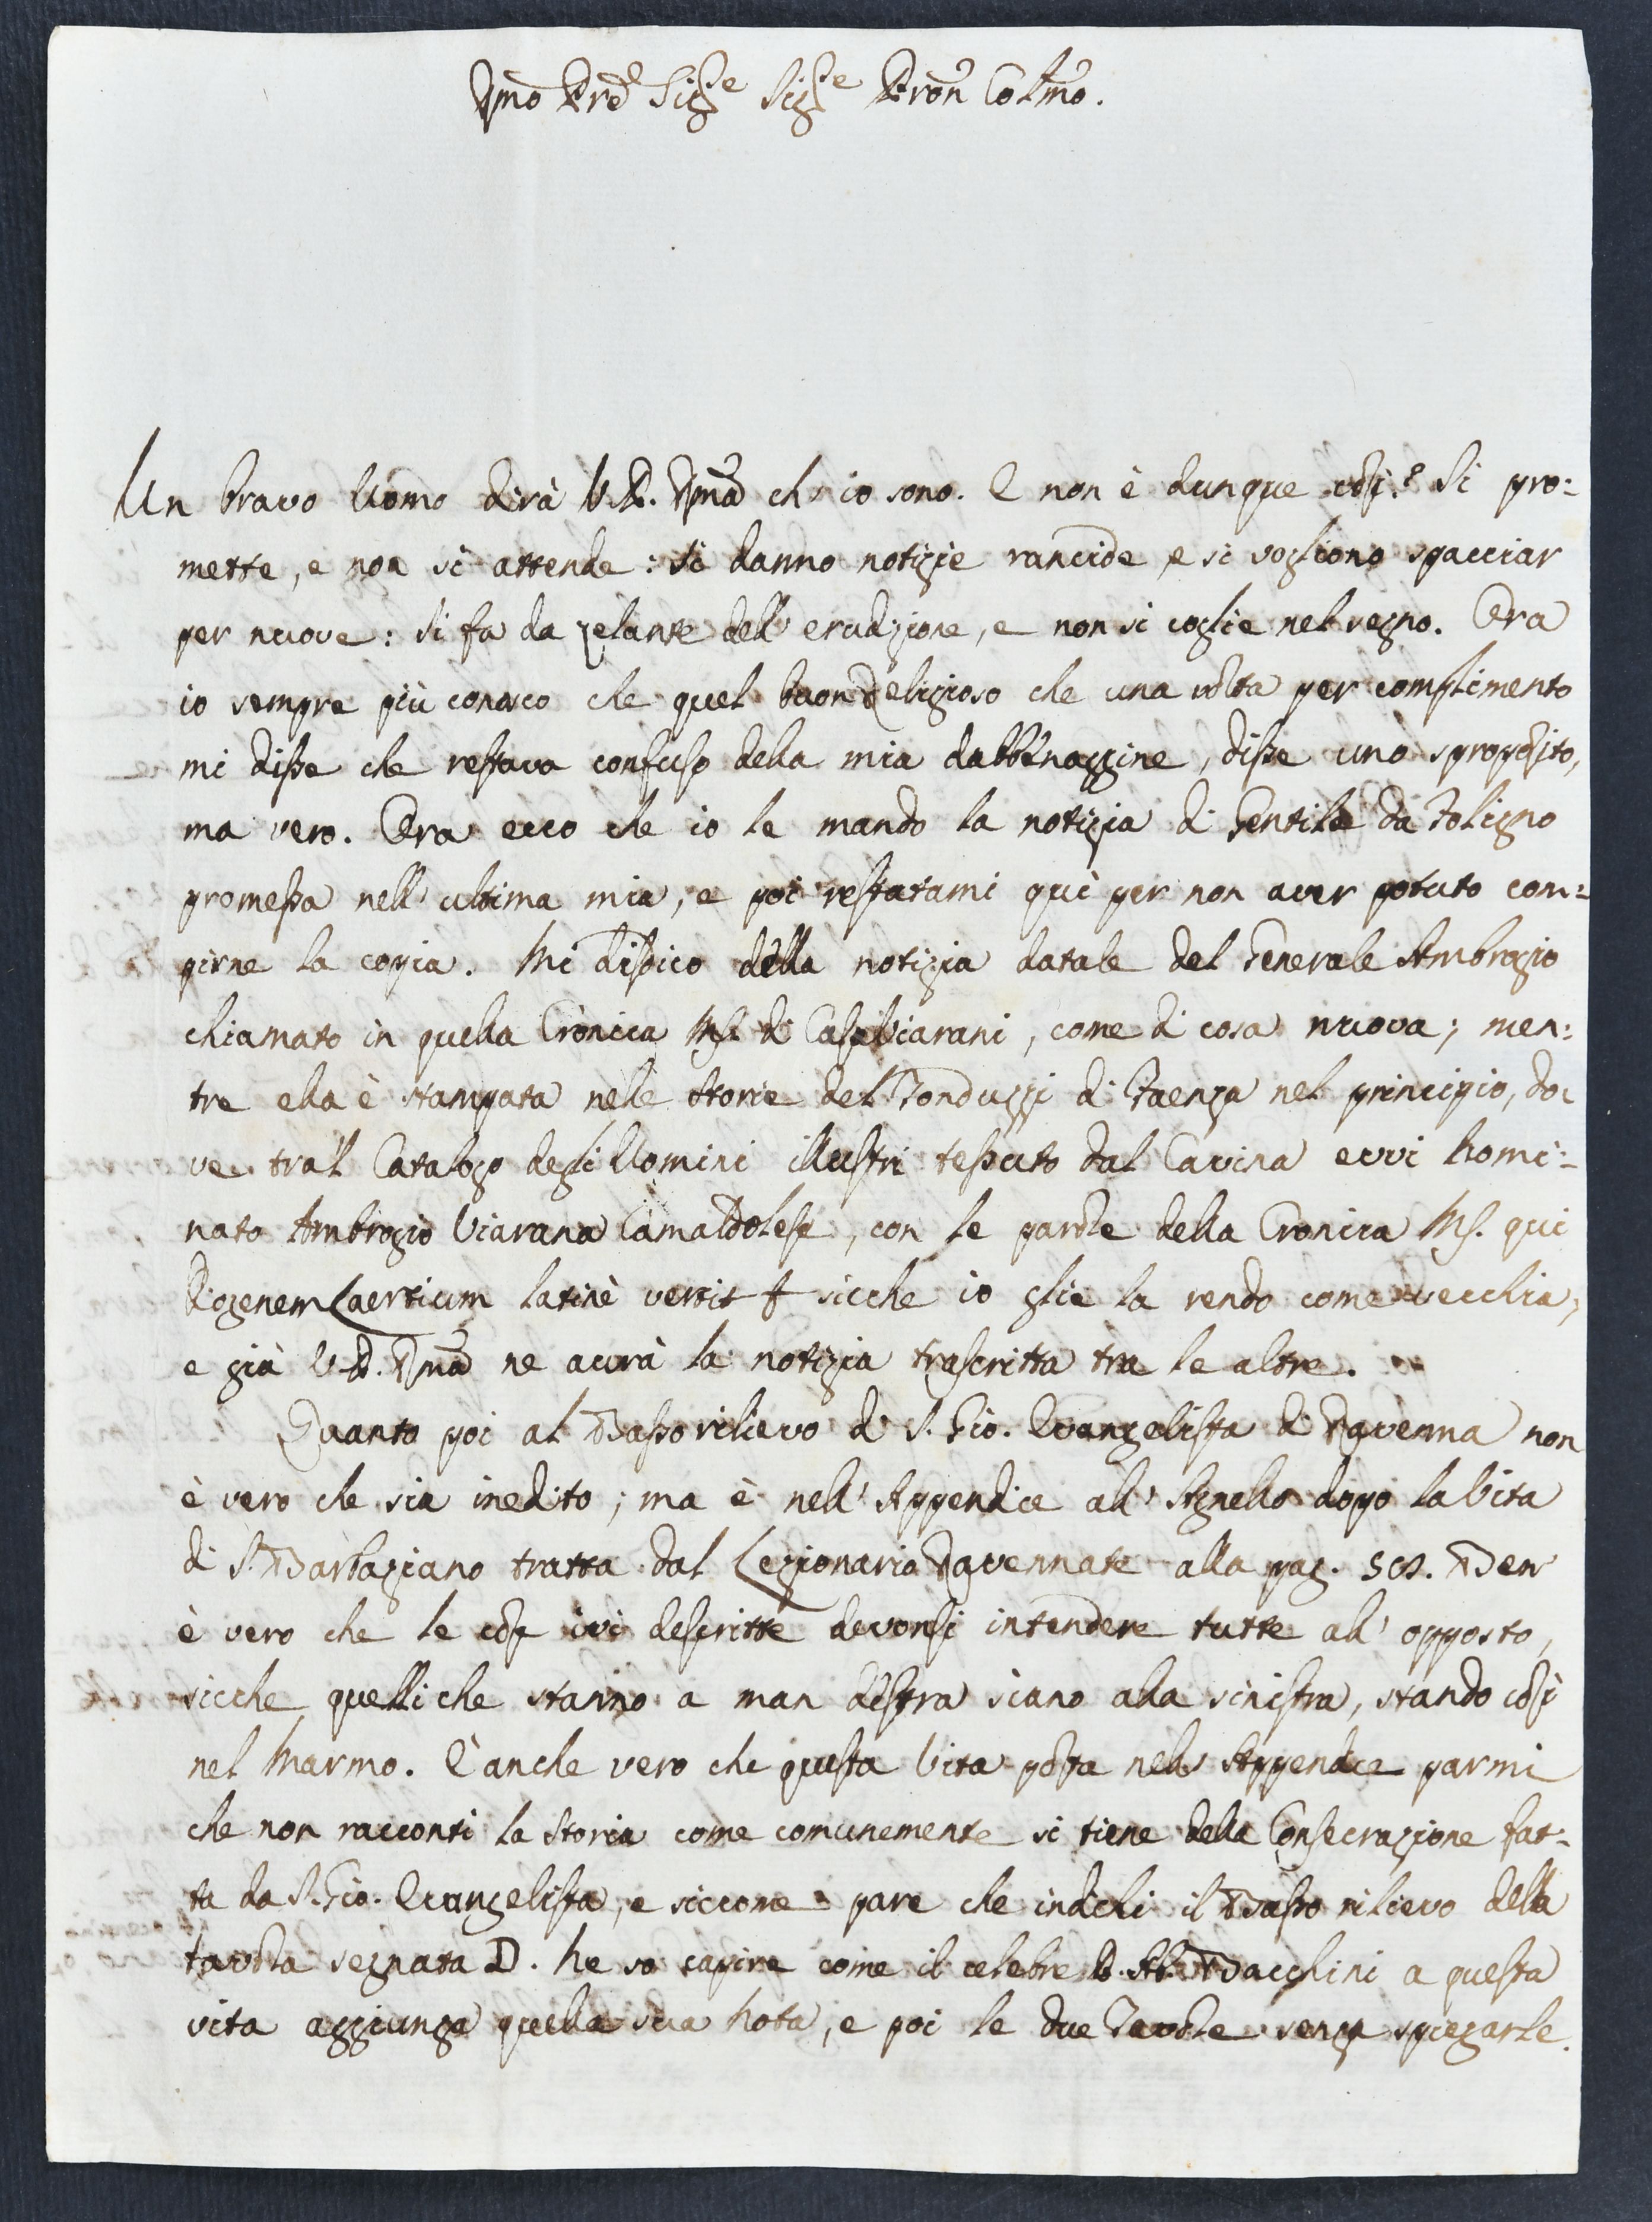 Rmo Pre Sigre Sigre Pron Colmo.
Un bravo Uomo dirà V. P. Rma ch'io sono. E non è dunque così? Si pro:
mette, e non si attende: si danno notizie rancide, e si vogliono spacciar
per nuove: si fa da zelante dell'erudizione, e non si coglie nel segno. Ora
io sempre più conosco che quel buon Religioso che una volta per complimento
mi disse che restava confuso della mia dabbenaggine, disse uno sproposito,
ma vero. Ora ecco che io le mando la notizia di Gentile da Foligno
promessa nell'ultima mia, e poi restatami quì per non aver potuto com:
pirne la copia. Mi disdico della notizia datale del Generale Ambrogio
chiamato in quella Cronica Ms. di Casa Viarani, come di cosa nuova; men:
tre ella è stampata nelle storie del Tonduzzi di Faenza nel principio, do:
ve tra'l Catalogo degli Uomini illustri tessuto dal Cavina evvi nomi:
nato Ambrogio Viarana Camaldolese, con le parole della Cronica Ms. qui
Diogenem Laertium latinè vertit sicche io glie la rendo come vecchia,
e già V. P. Rma ne avrà la notizia trascritta tra le altre.
Quanto poi al Basso rilievo di S. Gio. Evangelista di Ravenna non
è vero che sia inedito; ma è nell'Appendice all'Agnello dopo la Vita
di S. Barbaziano tratta dal Lezionario Ravennate alla pag. Ben
è vero che le cose ivi descritte devonsi intendere tutte all'opposto,
sicche quelli che stanno a man destra siano alla sinistra, stando così
nel Marmo. E' anche vero che questa Vita posta nell'Appendice parmi
che non racconti la Storia come comunemente si tiene della Consecrazione fat:
ta da S. Gio. Evangelista, e siccome pare che indichi il Basso rilievo della
tavola segnata D. Ne so capire come il celebre P. Ab. Bacchini a questa
vita aggiunga quella sua Nota, e poi le due Tavole senza spiegarle.